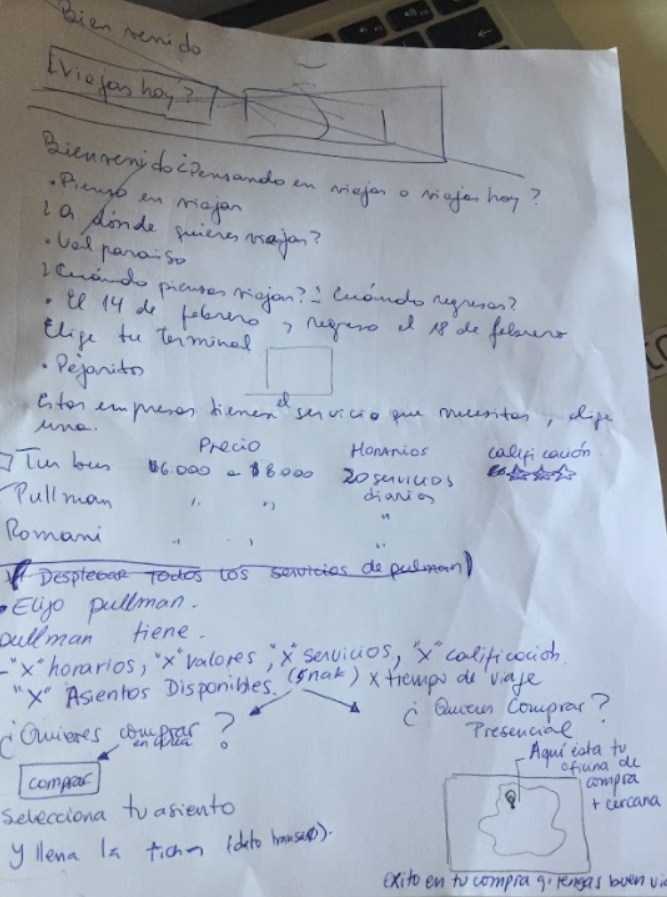 Bienvenido
¿Viajas hoy?
Bienvenido ¿Pensando en viajar o viajas hoy?
• Pienso en viajar
¿a dónde quieres viajar?
• Valparaíso
¿Cuándo piensas viajar? ¿Cuándo regresas?
• El 14 de febrero y regreso el 18 de febrero
Elige tu terminal
• Pajaritos
Estas empresas tienen el servicio que necesitas, elige
una.
Precio Horarios calificación
Tur bus $6.000 a $8000 20 servicios
diarios
Pullman " " "
Romani " " "
Desplegar todos los servicios de pulman)
• Elijo pullman.
pullman tiene.
- "x" horarios, "x" valores, "x" servicios, "x" calificación.
"x" Asientos Disponibles. (snak) x tiempo de viaje
¿Quieres comprar ?
en línea
¿Quieres Comprar ?
Presencial
comprar
Aquí está tu
oficina de
compra
+ cercana
Selecciona tu asiento
y llena la ficha (dato
exito en tu compra q' tengas buen